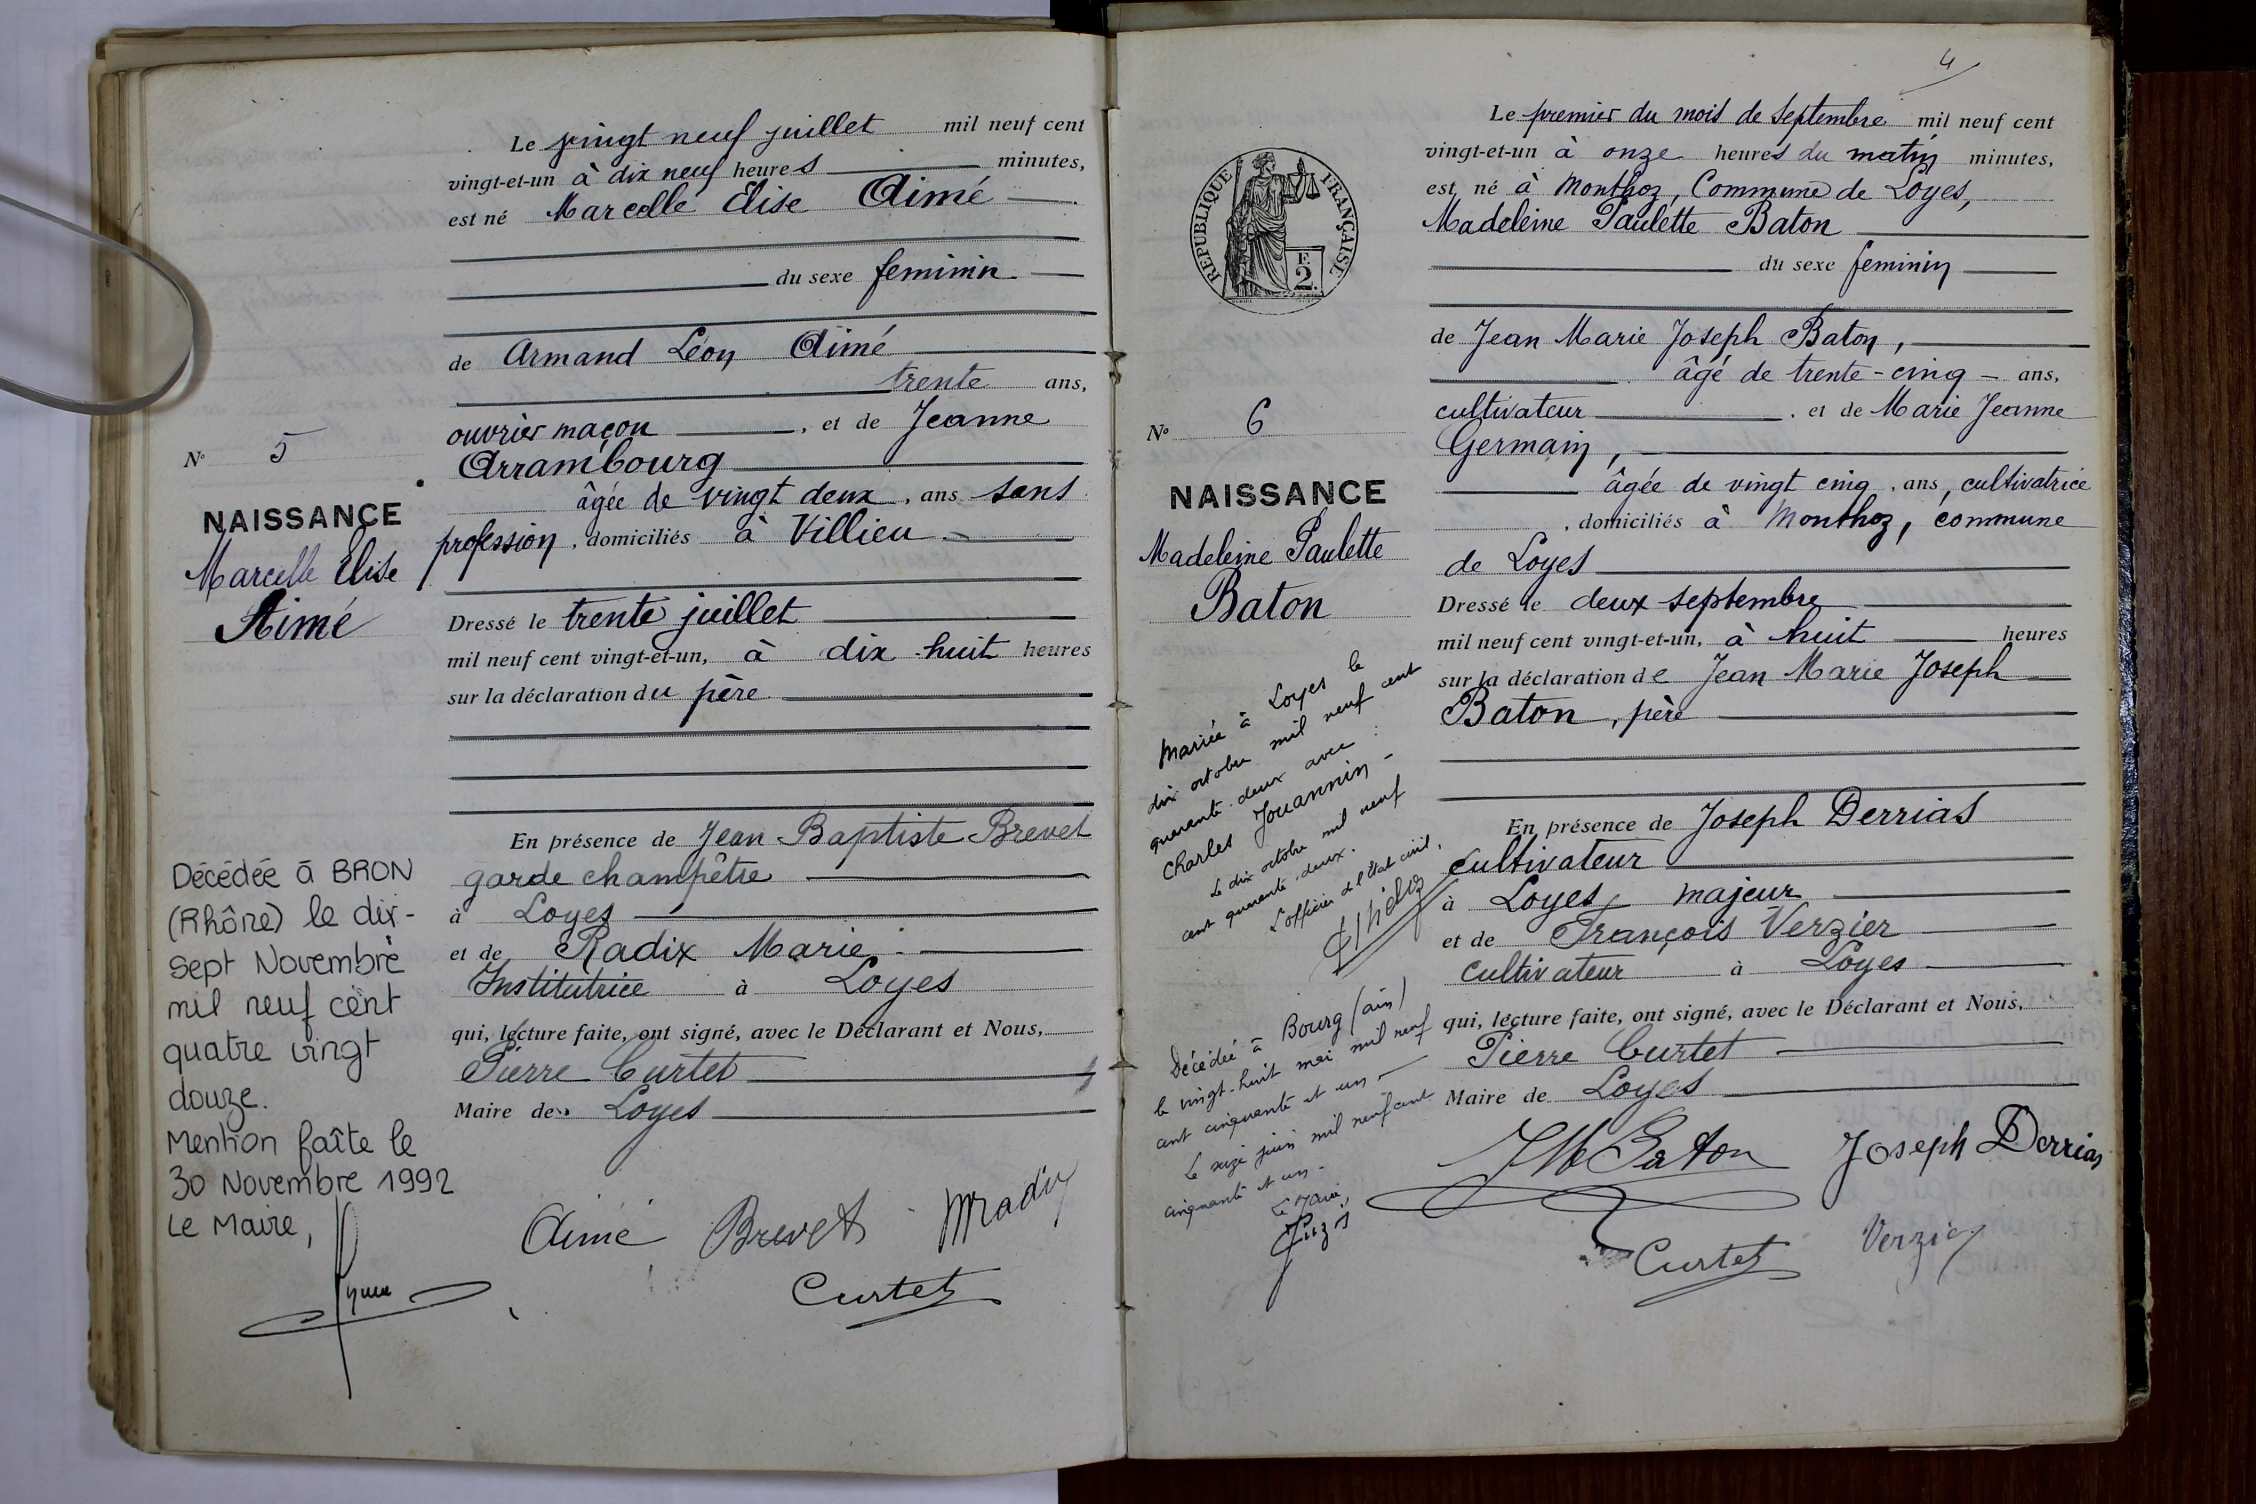 Le vingt neuf juillet mil neuf cent
vingt-et-un à dix neuf heures minutes,
est né Marcelle Elise Aimé
du sexe feminin
de Armand Léon Aimé
trente ans,
ouvrier maçon, et de Jeanne
Arrambourg
âgée de vingt deux, ans sans
profession, domiciliés à Villieu
Dressé le trente juillet
mil neuf cent vingt-et-un, à dix-huit heures
sur la déclaration du père
En présence de Jean-Baptiste Brevet
garde champêtre
à Loyes
et de Radix Marie
Institutrice à Loyes
qui, lecture faite, ont signé, avec le Déclarant et Nous,
Pierre Curtet
Maire de Loyes
Aimé Brevet MRadix
Curtet
N° 5
NAISSANCE
Marcelle Elise
Aimé
Décédée à BRON
(Rhône) le dix-
sept Novembre
mil neuf cent
quatre vingt
douze.
Mention faîte le
30 Novembre 1992
Le Maire,
4
Le premier du mois de septembre mil neuf cent
vingt-et-un à onze heures du matin minutes,
est né à Monthoz, Commune de Loyes,
Madeleine Paulette Baton
du sexe feminin
de Jean Marie Joseph Baton,
âgé de trente-cinq ans,
cultivateur, et de Marie Jeanne
Germain,
âgée de vingt cinq, ans, cultivatrice
, domiciliés à Monthoz, commune
de Loyes
Dressé le deux septembre
mil neuf cent vingt-et-un, à huit heures
sur la déclaration de Jean Marie Joseph
Baton, père
En présence de Joseph Derrias
cultivateur
à Loyes, majeur
et de François Verzier
cultivateur à Loyes
qui, lecture faite, ont signé, avec le Déclarant et Nous,
Pierre Curtet
Maire de Loyes
JM Baton Joseph Derrias
Curtet Verzier
RÉPUBLIQUE FRANÇAISE
F.
2.
N° 6
NAISSANCE
Madeleine Paulette
Baton
Mariée à Loyes le
dix octobre mil neuf cent
quarante deux avec
Charles Jouannin -
Le dix octobre mil neuf
cent quarante deux.
L'officier de l'Etat civil,
Décédée à Bourg (ain)
le vingt-huit mai mil neuf
cent cinquante et un -
Le seize juin mil neuf cent
cinquante et un -
Le Maire,